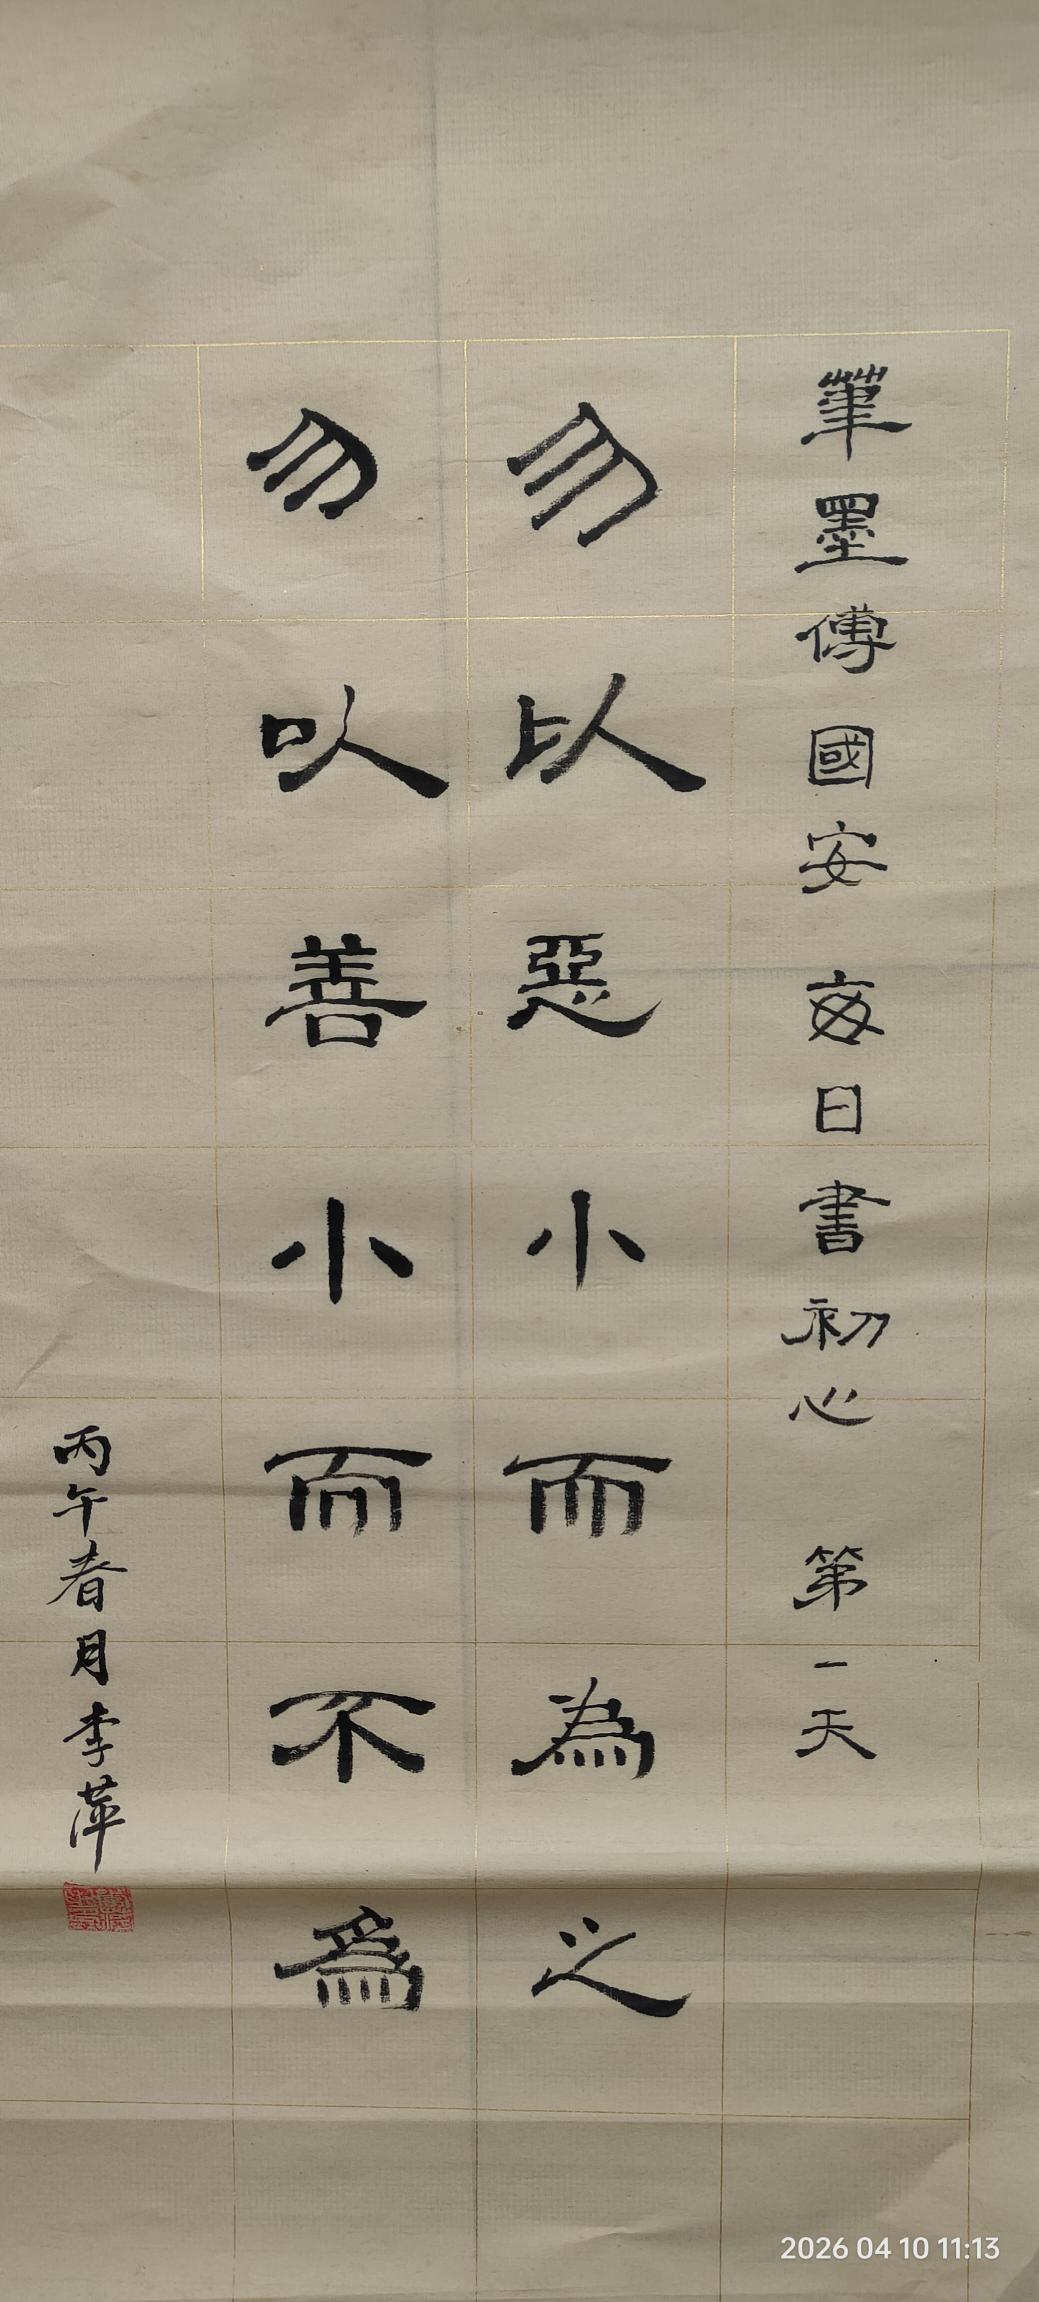 筆墨傳國安 每日書初心 第一天
勿以惡小而為之
勿以善小而不為
丙午春月李萍
2026 04 10 11:13